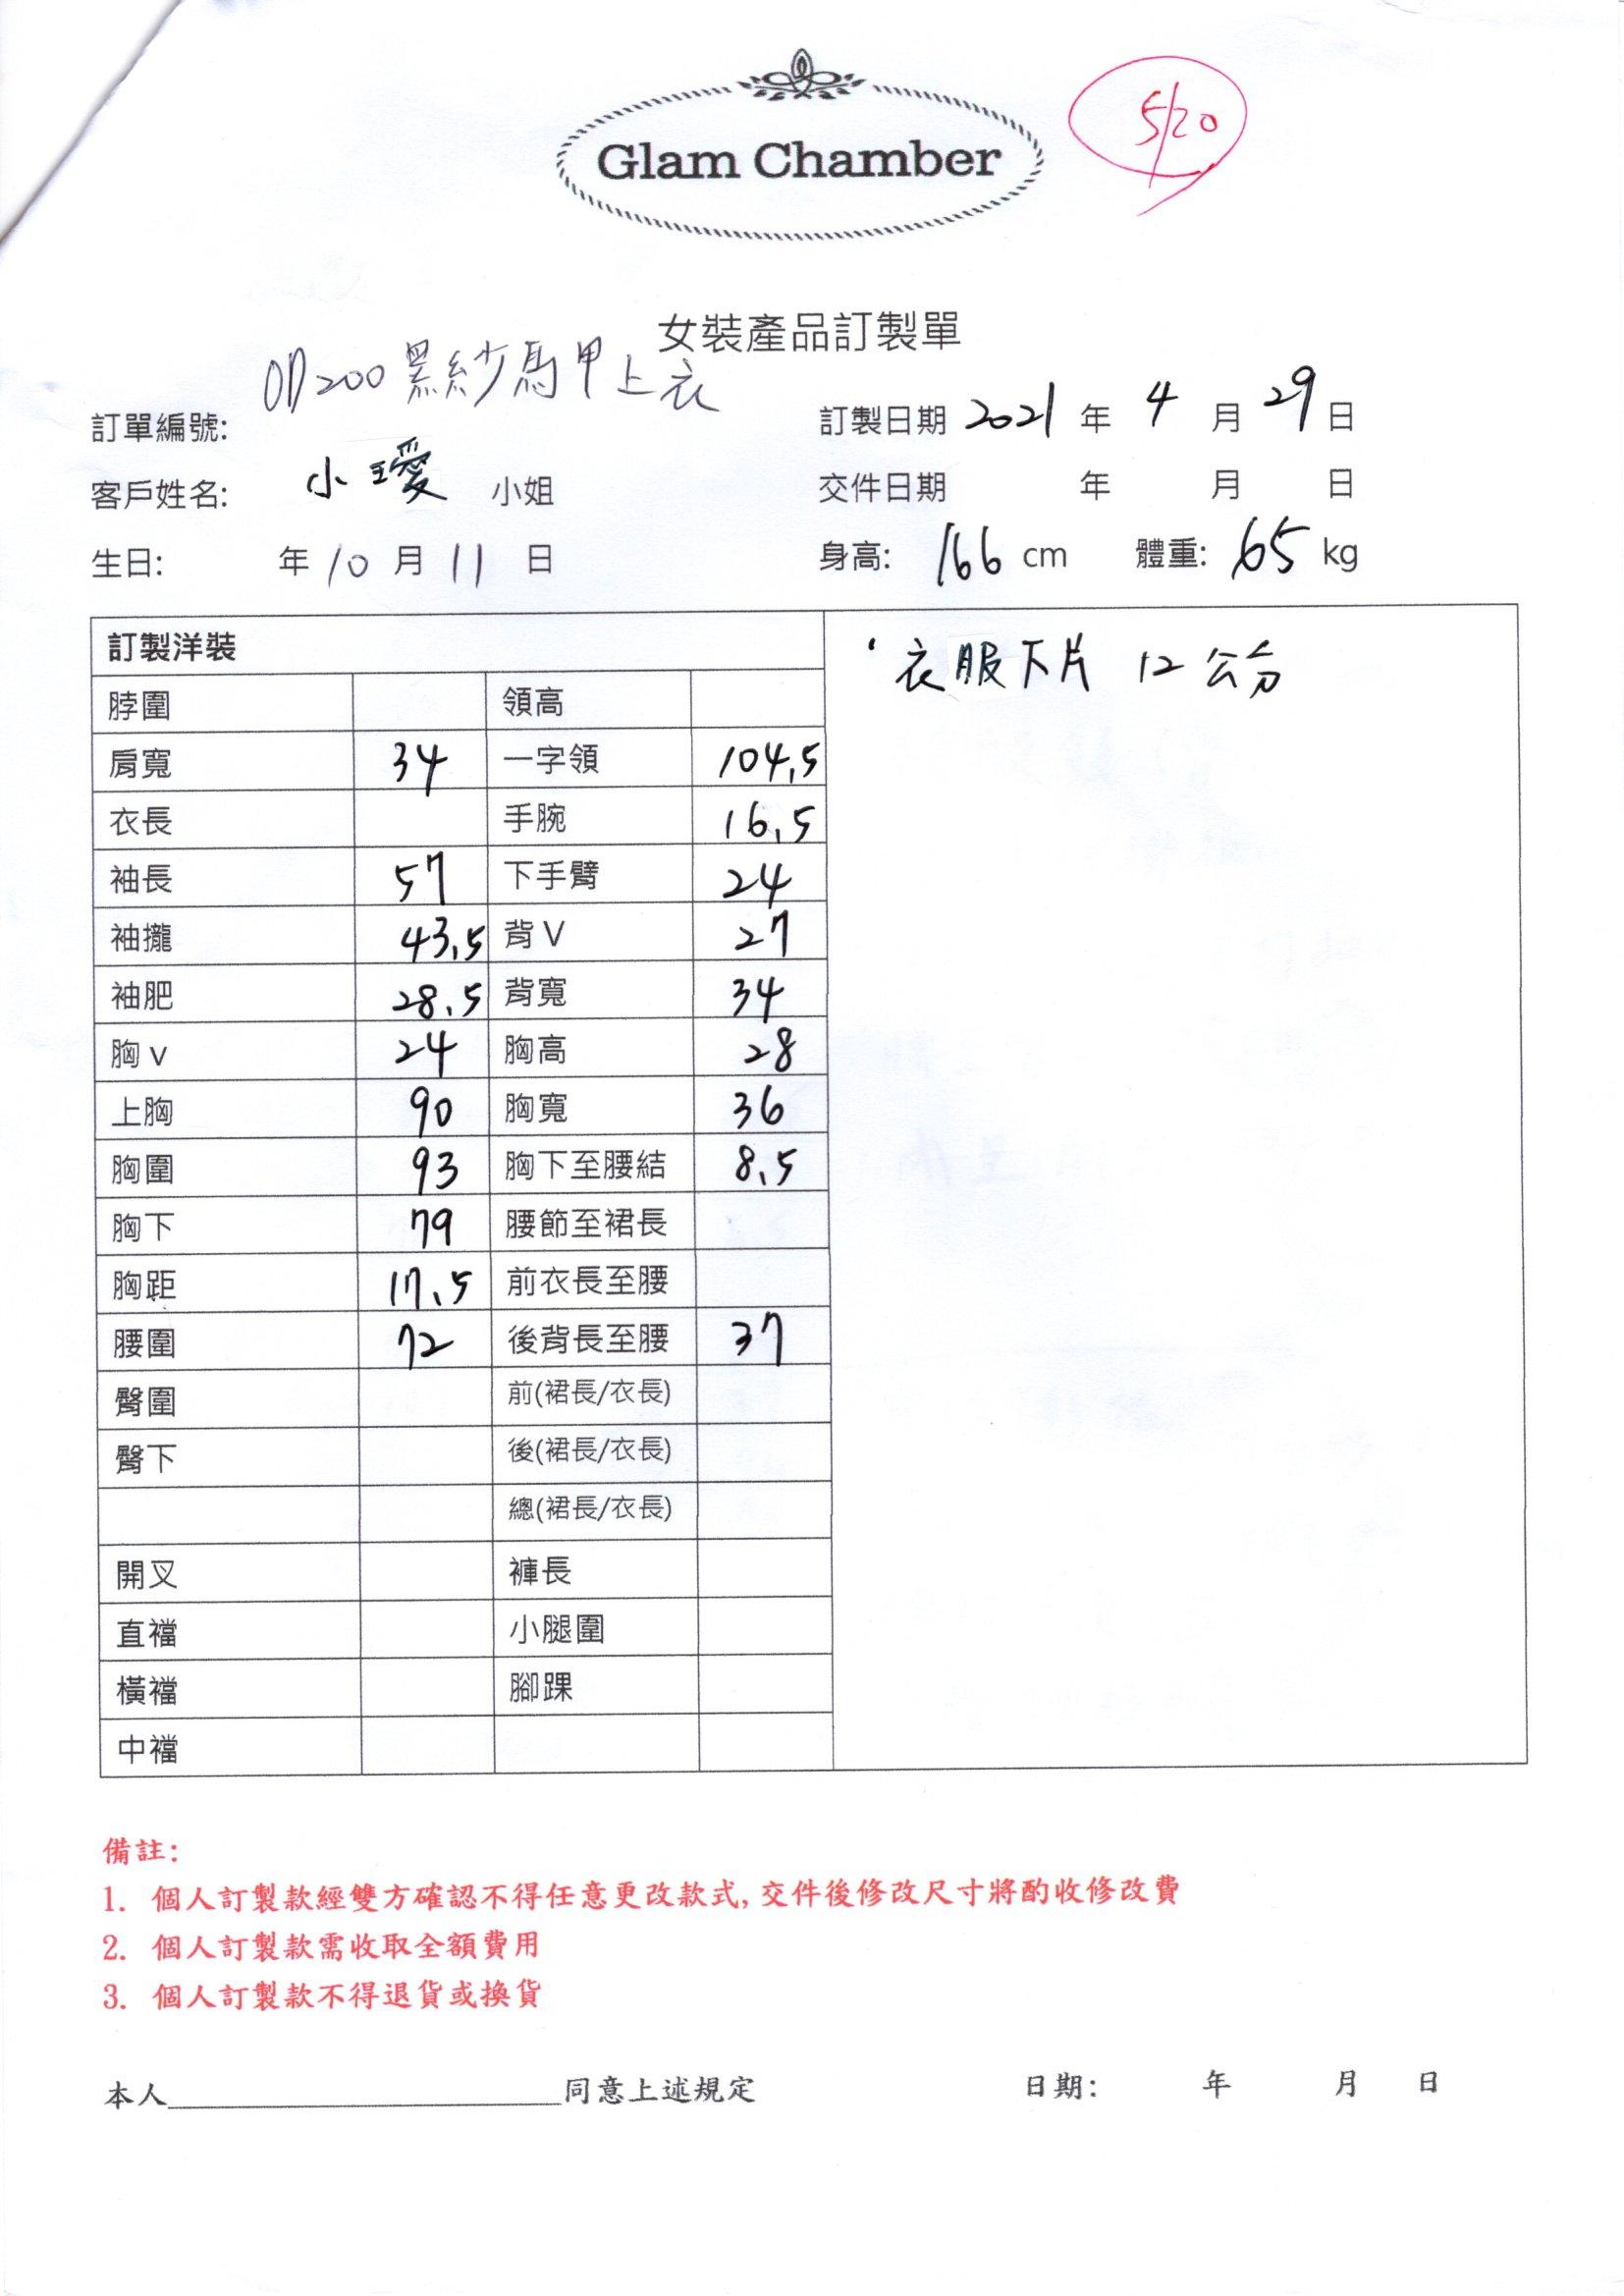 Glam Chamber
5/20
女裝產品訂製單
訂單編號: 07200黑紗馬甲上衣
訂製日期 2021 年 4 月 29 日
客戶姓名: 小璦 小姐
交件日期 年 月 日
生日: 年 10 月 11 日
身高: 166 cm 體重: 65 kg
訂製洋裝
脖圍 領高
肩寬 34 一字領 104.5
衣長 手腕 16.5
袖長 57 下手臂 24
袖攏 43.5 背V 27
袖肥 28.5 背寬 34
胸v 24 胸高 28
上胸 90 胸寬 36
胸圍 93 胸下至腰結 8.5
胸下 79 腰節至裙長
胸距 17.5 前衣長至腰
腰圍 72 後背長至腰 37
臀圍 前(裙長/衣長)
臀下 後(裙長/衣長)
總(裙長/衣長)
開叉 褲長
直襠 小腿圍
橫襠 腳踝
中襠
衣服下片 12公分
備註:
1. 個人訂製款經雙方確認不得任意更改款式,交件後修改尺寸將酌收修改費
2. 個人訂製款需收取全額費用
3. 個人訂製款不得退貨或換貨
本人____________________同意上述規定 日期: 年 月 日